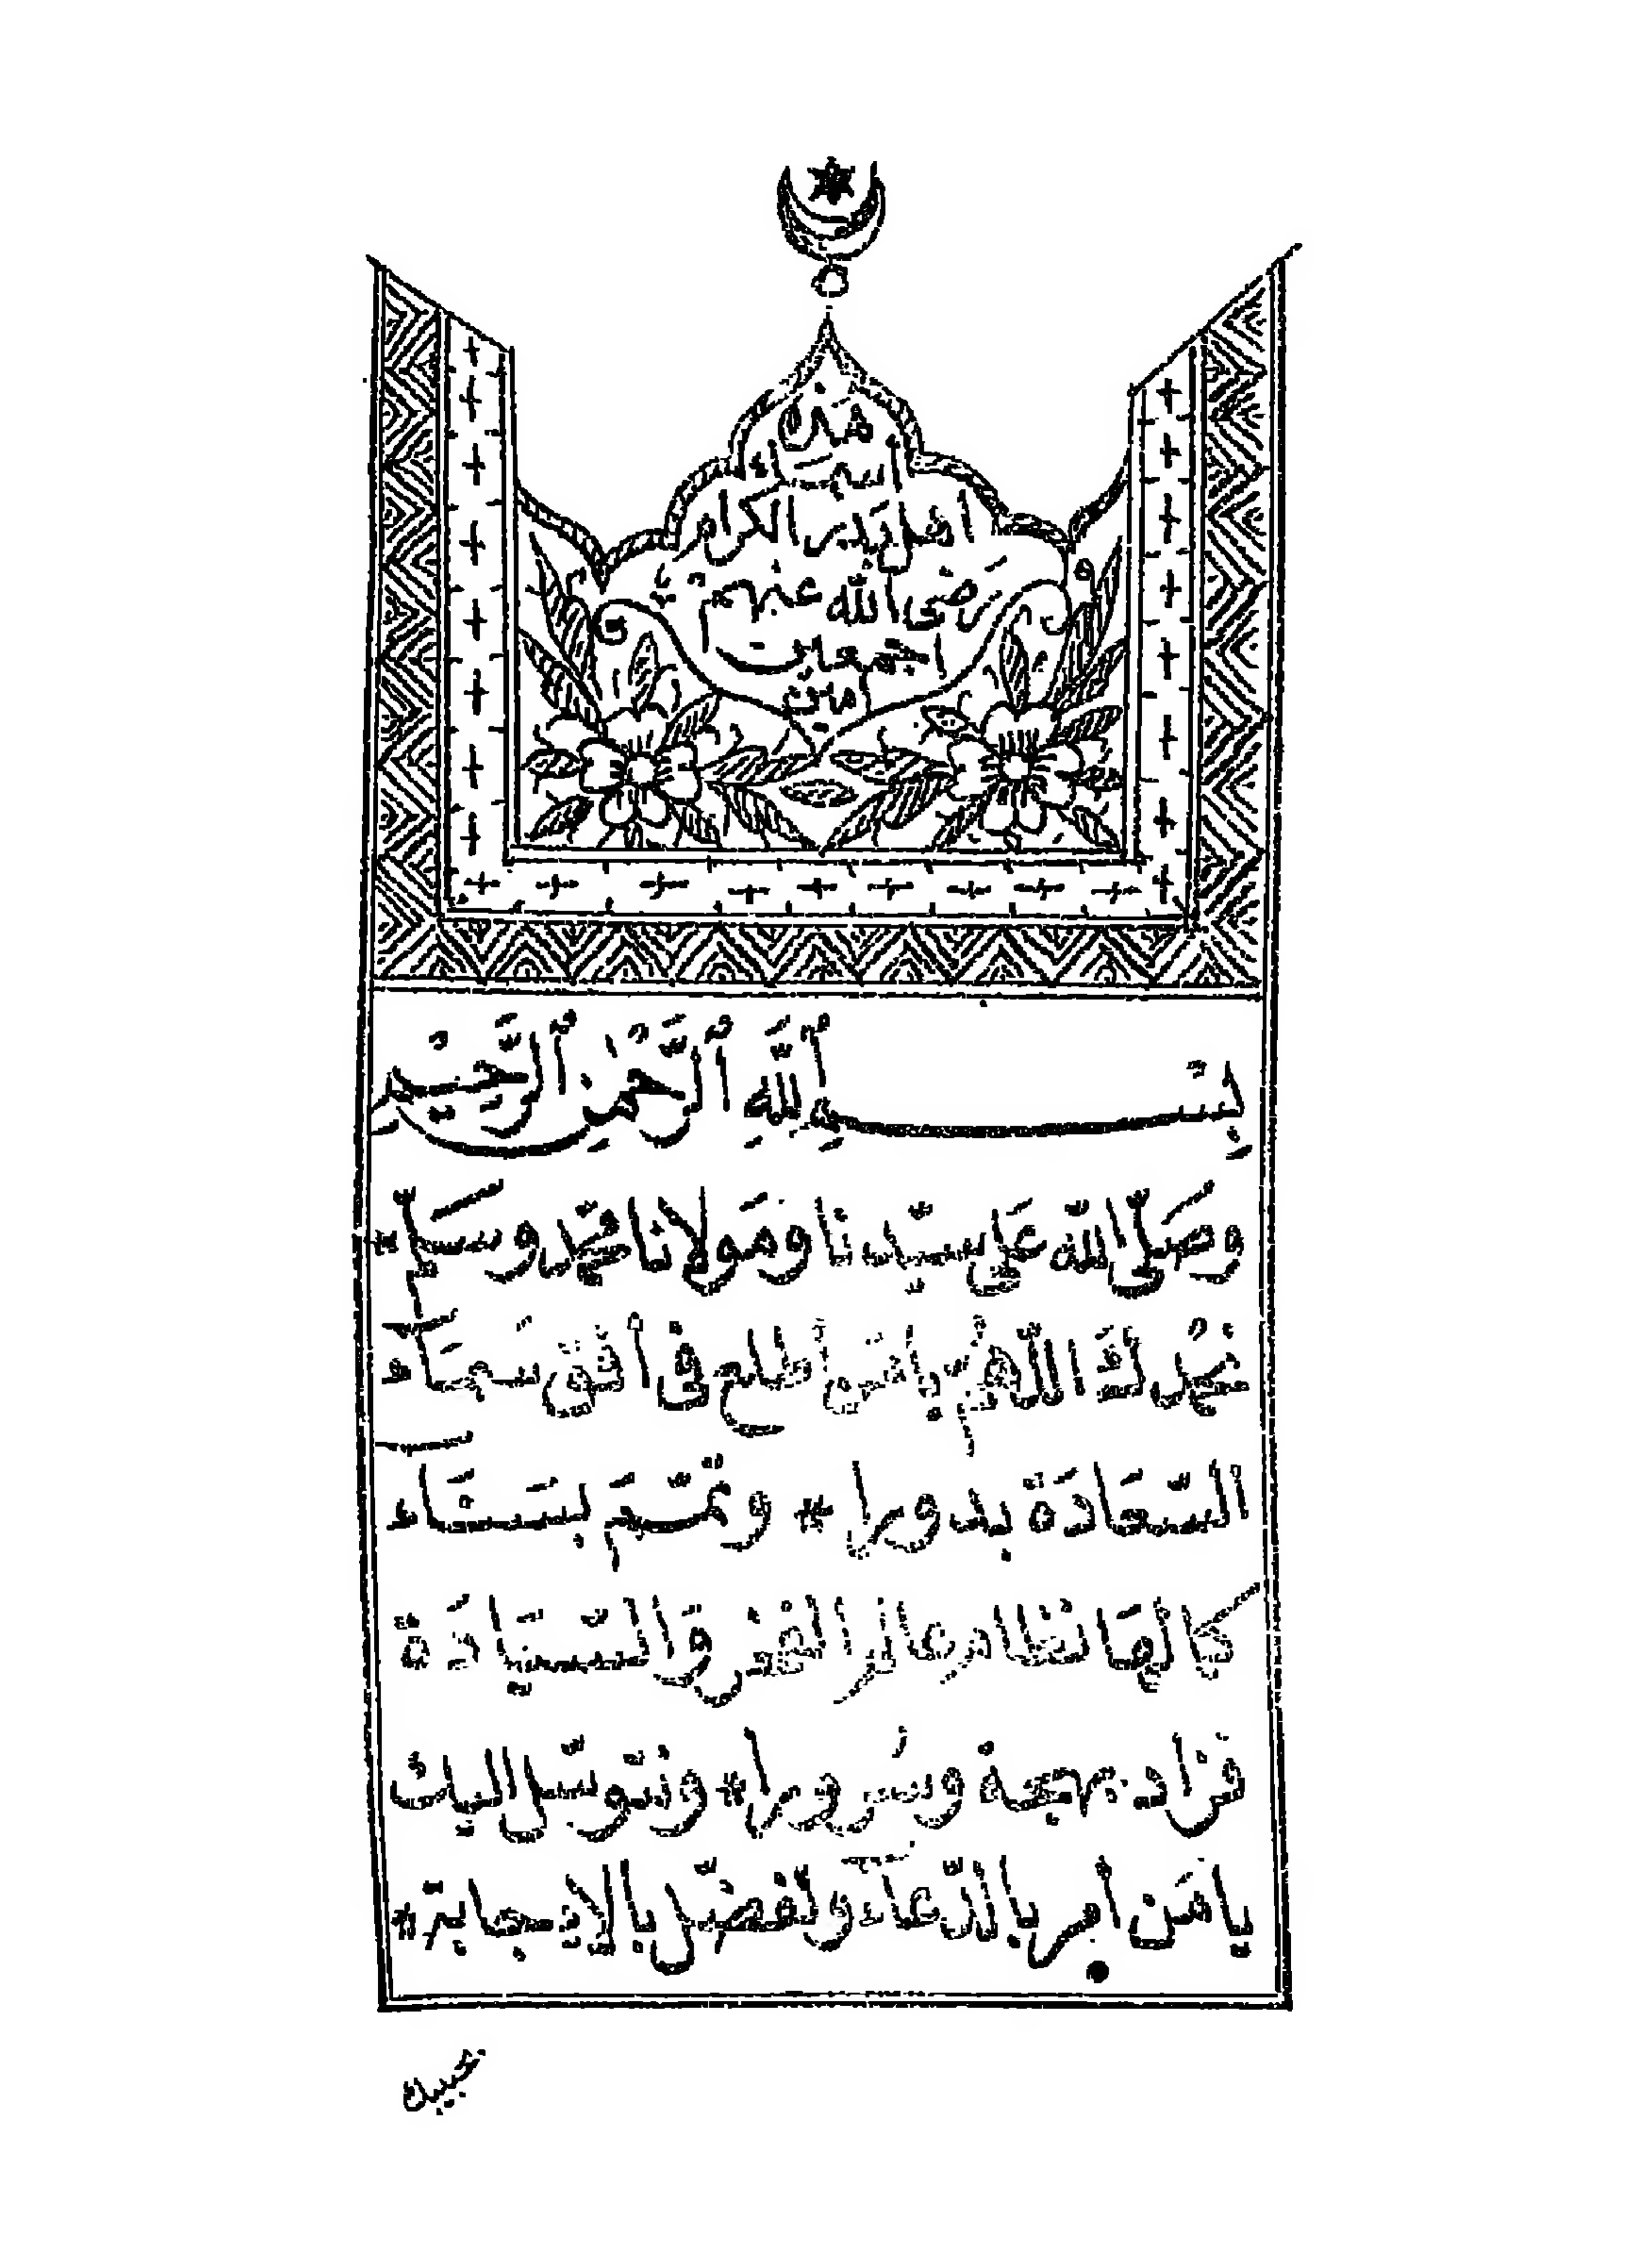 هذه
أسماء
اهل بدر الكرام
رضى الله عنهم
اجمعين
امين
بِسْمِ ٱللَّهِ ٱلرَّحْمٰنِ ٱلرَّحِيْمِ
وصَلَّى اللّٰه عَلى سيّدنا ومَولانا محمّد وسَلّم *
اللّٰهم يا مَن أطلع فى أفق سَمَاء
السّعَادَة بدورا * وتمّم بسَنَاء
كمالهَا نظام عالم الفخر وَالسّيَادَة
فزاد بهجة وسُرورا * ونتوسّل اليك
يا مَن أمر بالدّعَآء وتفضّل بالإجابة *